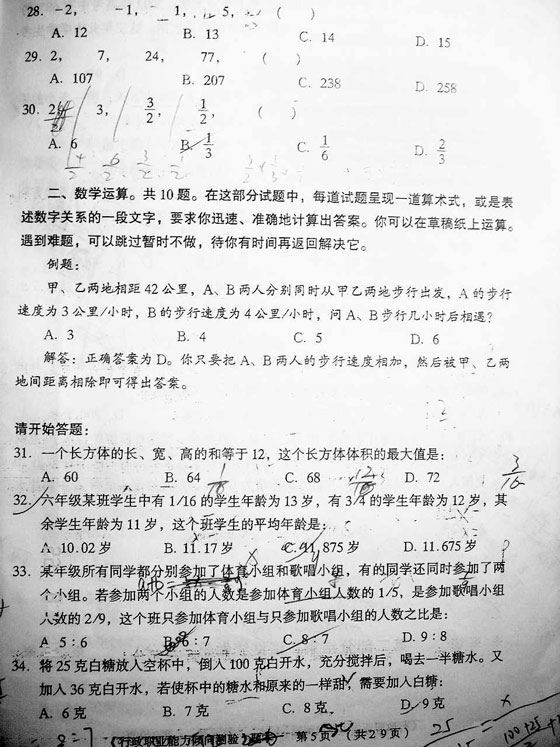 28. -2, -1, 1, 5, ( )
A. 12 B. 13 C. 14 D. 15
29. 2, 7, 24, 77, ( )
A. 107 B. 207 C. 238 D. 258
30. 2, 3, 3/2, 1/2, ( )
A. 6 B. 1/3 C. 1/6 D. 2/3
二、数学运算。共 10 题。在这部分试题中，每道试题呈现一道算术式，或是表
述数字关系的一段文字，要求你迅速、准确地计算出答案。你可以在草稿纸上运算。
遇到难题，可以跳过暂时不做，待你有时间再返回解决它。
例题：
甲、乙两地相距 42 公里，A、B 两人分别同时从甲乙两地步行出发，A 的步行
速度为 3 公里/小时，B 的步行速度为 4 公里/小时，问 A、B 步行几小时后相遇？
A. 3 B. 4 C. 5 D. 6
解答：正确答案为 D。你只要把 A、B 两人的步行速度相加，然后被甲、乙两
地间距离相除即可得出答案。
请开始答题：
31. 一个长方体的长、宽、高的和等于 12，这个长方体体积的最大值是：
A. 60 B. 64 C. 68 D. 72
32. 六年级某班学生中有 1/16 的学生年龄为 13 岁，有 3/4 的学生年龄为 12 岁，其
余学生年龄为 11 岁，这个班学生的平均年龄是：
A 10.02 岁 B. 11.17 岁 C. 11.875 岁 D. 11.675 岁
33. 某年级所有同学都分别参加了体育小组和歌唱小组，有的同学还同时参加了两
个小组。若参加两个小组的人数是参加体育小组人数的 1/5，是参加歌唱小组
人数的 2/9，这个班只参加体育小组与只参加歌唱小组的人数之比是：
A 5：6 B. 6：7 C. 8：7 D. 9：8
34. 将 25 克白糖放入空杯中，倒入 100 克白开水，充分搅拌后，喝去一半糖水。又
加入 36 克白开水，若使杯中的糖水和原来的一样甜，需要加入白糖：
A. 6 克 B. 7 克 C. 8 克 D. 9 克
第 5 页 （共 2 9 页）